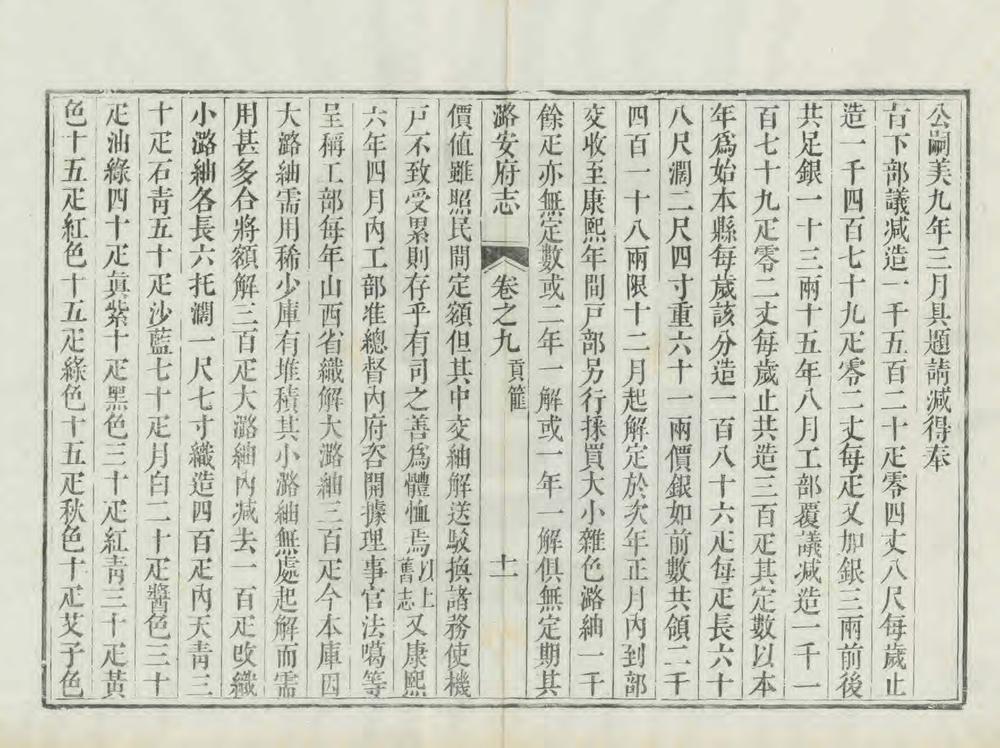 公嗣美九年三月具題請減得奉
旨下部議减造一千五百二十疋零四丈八尺每歲止
造一千四百七十九疋零二丈每疋又加銀三兩前後
共足銀一十三兩十五年八月工部覆議减造一千一
百七十九疋零二丈每歲止共造三百疋其定數以本
年爲始本縣每歲該分造一百八十六疋每疋長六十
八尺濶二尺四寸重六十一兩價銀如前數共領二千
四百一十八兩限十二月起解定於次年正月內到部
交收至康熙年間戸部另行採買大小雜色潞紬一千
餘疋亦無定數或二年一解或一年一解俱無定期其
潞安府志 卷之九 貢篚 十一
價值雖照民間定額但其中交紬解送駁換諸務使機
戸不致受累則存乎有司之善爲體恤焉以上舊志又康熙
六年四月內工部准總督內府咨開據理事官法噶等
呈稱工部每年山西省織解大潞紬三百疋今本庫因
大潞紬需用稀少庫有堆積其小潞紬無處起解而需
用甚多合將額解三百疋大潞紬內减去一百疋改織
小潞紬各長六托濶一尺七寸織造四百疋內天青三
十疋石青五十疋沙藍七十疋月白二十疋醬色三十
疋油綠四十疋眞紫十疋黑色三十疋紅青三十疋黃
色十五疋紅色十五疋綠色十五疋秋色十疋艾子色